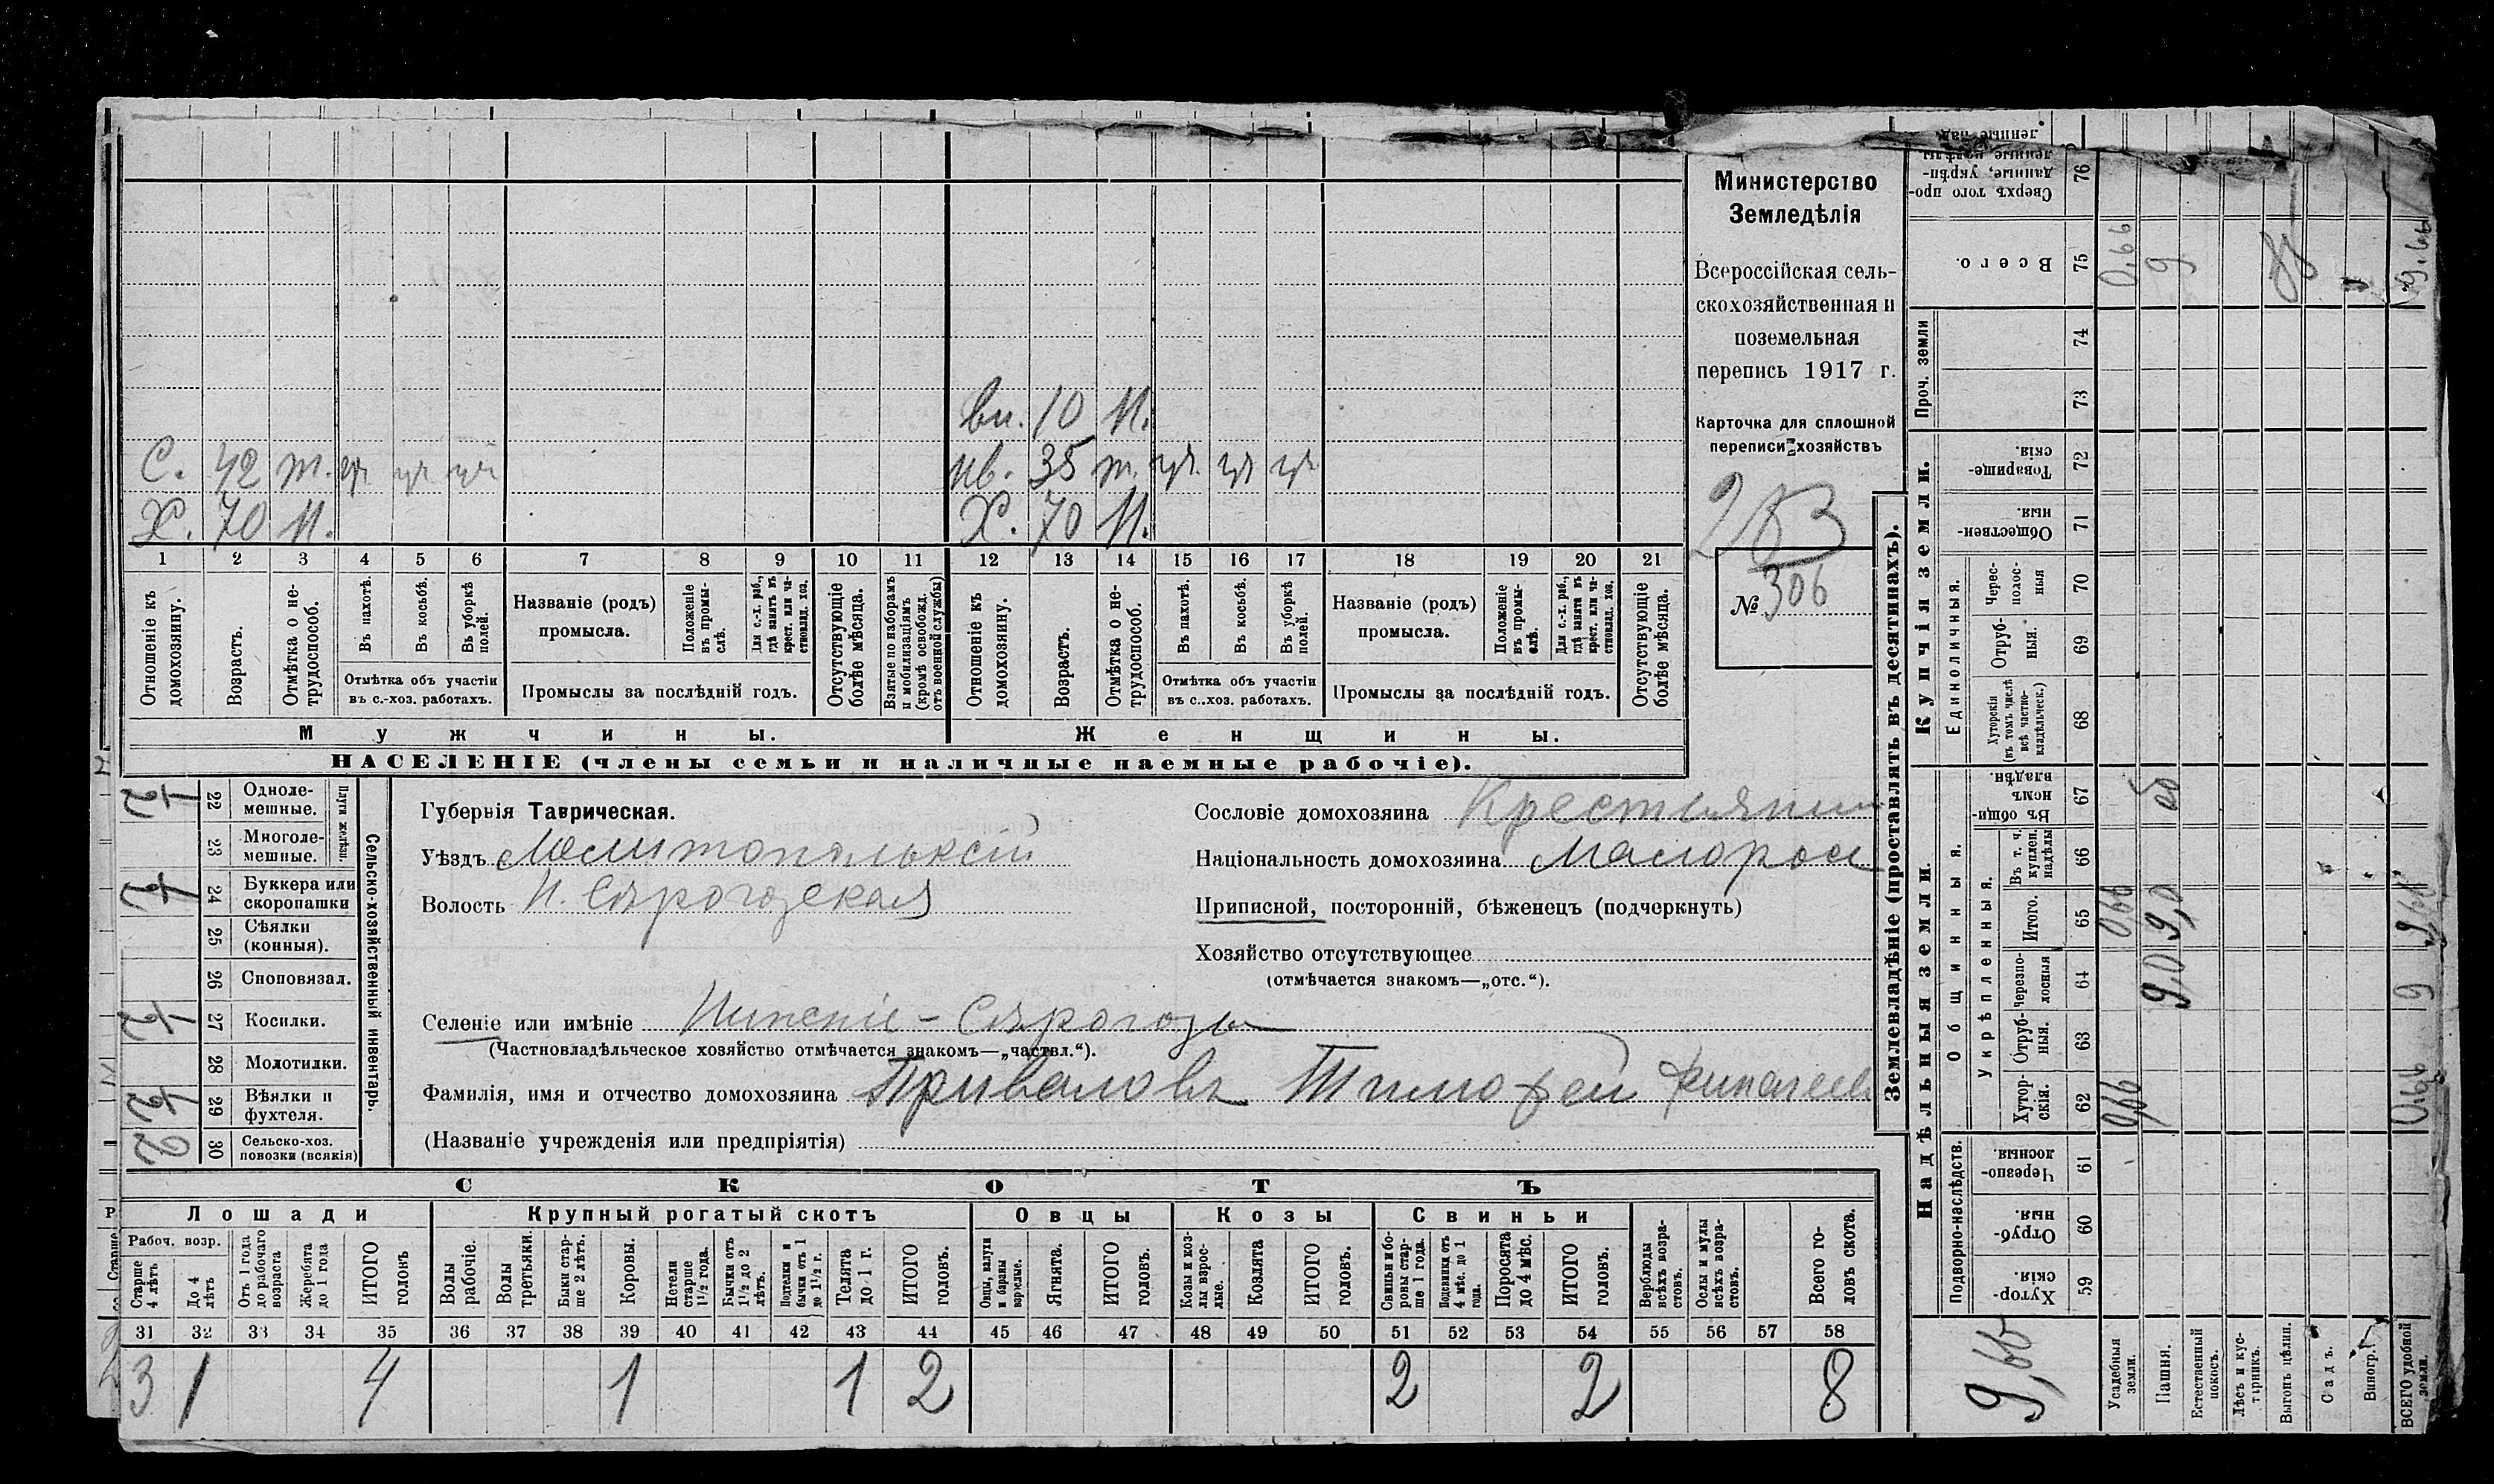 Министерство
Земледѣлія
Всероссійская сель-
скохозяйственная и
поземельная
перепись 1917 г.
Карточка для сплошной
переписи хозяйствъ
283
№ 306
вн. 10 н.
С. 42 т. уч уч уч
нв. 35 т. уч. уч уч
Х. 70 н.
Х. 70 н.
1 2 3 4 5 6 7 8 9 10 11 12 13 14 15 16 17 18 19 20 21
Отношеніе къ домохозяину.
Возрастъ.
Отмѣтка о не-трудоспособ.
Въ пахотѣ.
Въ косьбѣ.
Въ уборкѣ полей.
Отмѣтка объ участіи
въ с.-хоз. работахъ.
Названіе (родъ)
промысла.
Положеніе въ промы-слѣ.
Для с.-х. раб., гдѣ занятъ въ крест. или ча-стновлад. хоз.
Промыслы за послѣдній годъ.
Отсутствующіе болѣе мѣсяца.
Взятые по наборамъ и мобилизаціямъ (кромѣ освобожд. отъ военной службы)
Отношеніе къ домохозяину.
Возрастъ.
Отмѣтка о не-трудоспособ.
Въ пахотѣ.
Въ косьбѣ.
Въ уборкѣ полей.
Отмѣтка объ участіи
въ с.-хоз. работахъ.
Названіе (родъ)
промысла.
Положеніе въ промы-слѣ.
Для с.-х. раб., гдѣ занята въ крест. или ча-стновлад. хоз.
Промыслы за послѣдній годъ.
Отсутствующіе болѣе мѣсяца.
Мужчины.
Женщины.
НАСЕЛЕНІЕ (члены семьи и наличные наемные рабочіе).
Сельско-хозяйственный инвентарь.
Плуги желѣзн.
22 Одноле-мешные.
23 Многоле-мешные.
24 Буккера или скоропашки
25 Сѣялки (конныя).
26 Сноповязал.
27 Косилки.
28 Молотилки.
29 Вѣялки и фухтеля.
30 Сельско-хоз. повозки (всякія) 2
Губернія Таврическая.
Уѣздъ Мелитопольскій
Волость Н. Сѣрогозская
Селеніе или имѣніе Нижніе-Сѣрогозы
(Частновладѣльческое хозяйство отмѣчается знакомъ—„частвл.“).
Фамилія, имя и отчество домохозяина Приваловъ Тимофей
(Названіе учрежденія или предпріятія)
Сословіе домохозяина Крестьянин
Національность домохозяина Малорос
Приписной, посторонній, бѣженецъ (подчеркнуть)
Хозяйство отсутствующее
(отмѣчается знакомъ—„отс.“).
СКОТЪ
Лошади
Крупный рогатый скотъ
Овцы
Козы
Свиньи
Рабоч. возр.
Старше 4 лѣтъ
До 4 лѣтъ
Отъ 1 года до рабочаго возраста
Жеребята до 1 года
ИТОГО головъ
Волы рабочіе.
Волы третьячки.
Быки стар-ше 2 лѣтъ.
Коровы.
Нетели старше 1½ года.
Бычки отъ 1½ до 2 лѣтъ.
Подтелки и бычки отъ 1 до 1½ г.
Телята до 1 г.
ИТОГО головъ.
Овцы, валухи и бараны взрослые.
Ягнята.
ИТОГО головъ.
Козы и коз-лы взрос-лые.
Козлята
ИТОГО головъ.
Свиньи и бо-ровы стар-ше 1 года.
Подсвинки отъ 4 мѣс. до 1 года.
Поросята до 4 мѣс.
ИТОГО головъ.
Верблюды всѣхъ возра-стовъ.
Ослы и мулы всѣхъ возра-стовъ.
Всего го-ловъ скота.
31 32 33 34 35 36 37 38 39 40 41 42 43 44 45 46 47 48 49 50 51 52 53 54 55 56 57 58
3 1 4 1 1 2 2 2 8
Землевладѣніе (проставлять въ десятинахъ).
Надѣльныя земли.
Купчія земли.
Проч. земли
Подворно-наслѣдств.
Общинныя.
Укрѣпленныя.
Единоличныя.
59 Хутор-скія.
60 Отруб-ныя.
61 Черезпо-лосныя.
62 Хутор-скія. 0,66 0,66
63 Отруб-ныя.
64 Черезпо-лосныя 9,0 9
65 Итого. 0,66 9,0 9,66
66 Въ т. ч. куплен. надѣлы
67 Въ общин-номъ владѣн.
68 Хуторскія (въ томъ числѣ всѣ частно-владѣльческ.)
69 Отруб-ныя.
70 Черес-полос-ныя
71 Обществен-ныя.
72 Товарище-скія.
73
74
75 Всего. 0,66 9 9,66
76 Сверхъ того про-данные, укрѣп-ленные надѣлы
9,66
Усадебныя земли.
Пашня.
Естественный покосъ.
Лѣсъ и кус-тарникъ.
Выгонъ цѣлин.
Садъ.
Виногр.
ВСЕГО удобной земли.